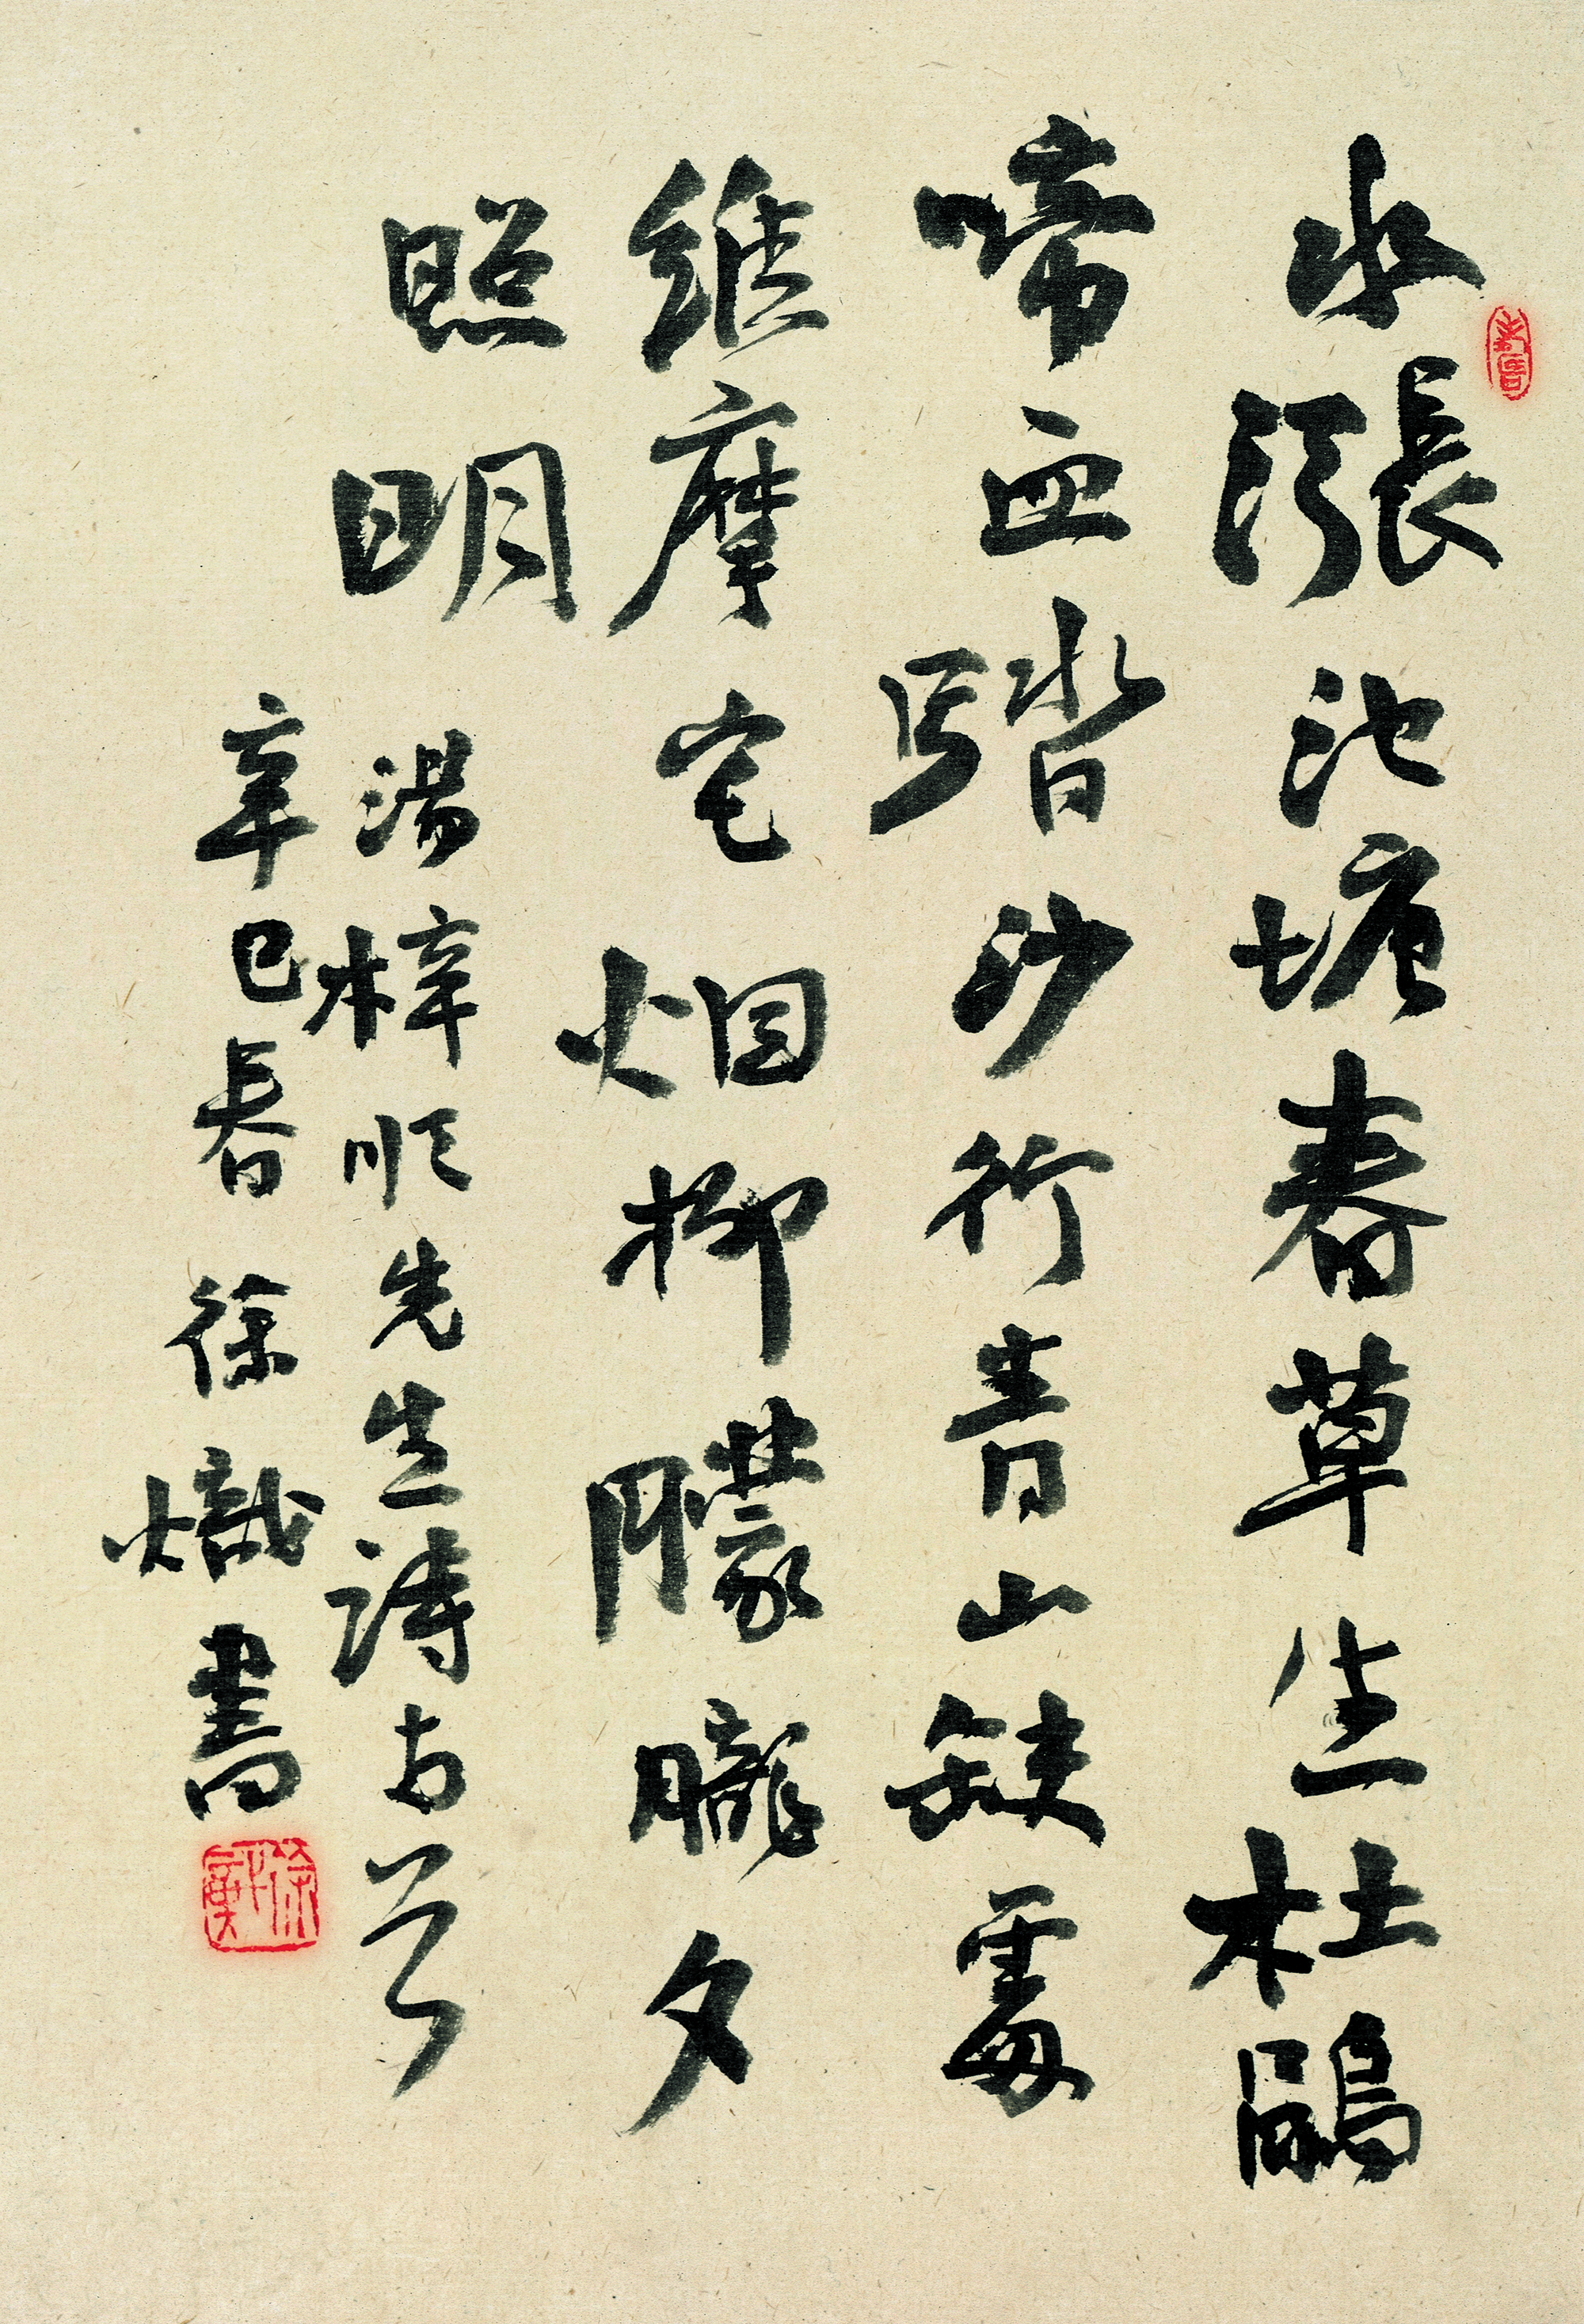 水漲池塘春草生杜鵑
啼血踏沙行青山缺處
維摩宅烟柳朦朧夕
照明
湯梓順先生詩古民
辛巳春 徐熾書